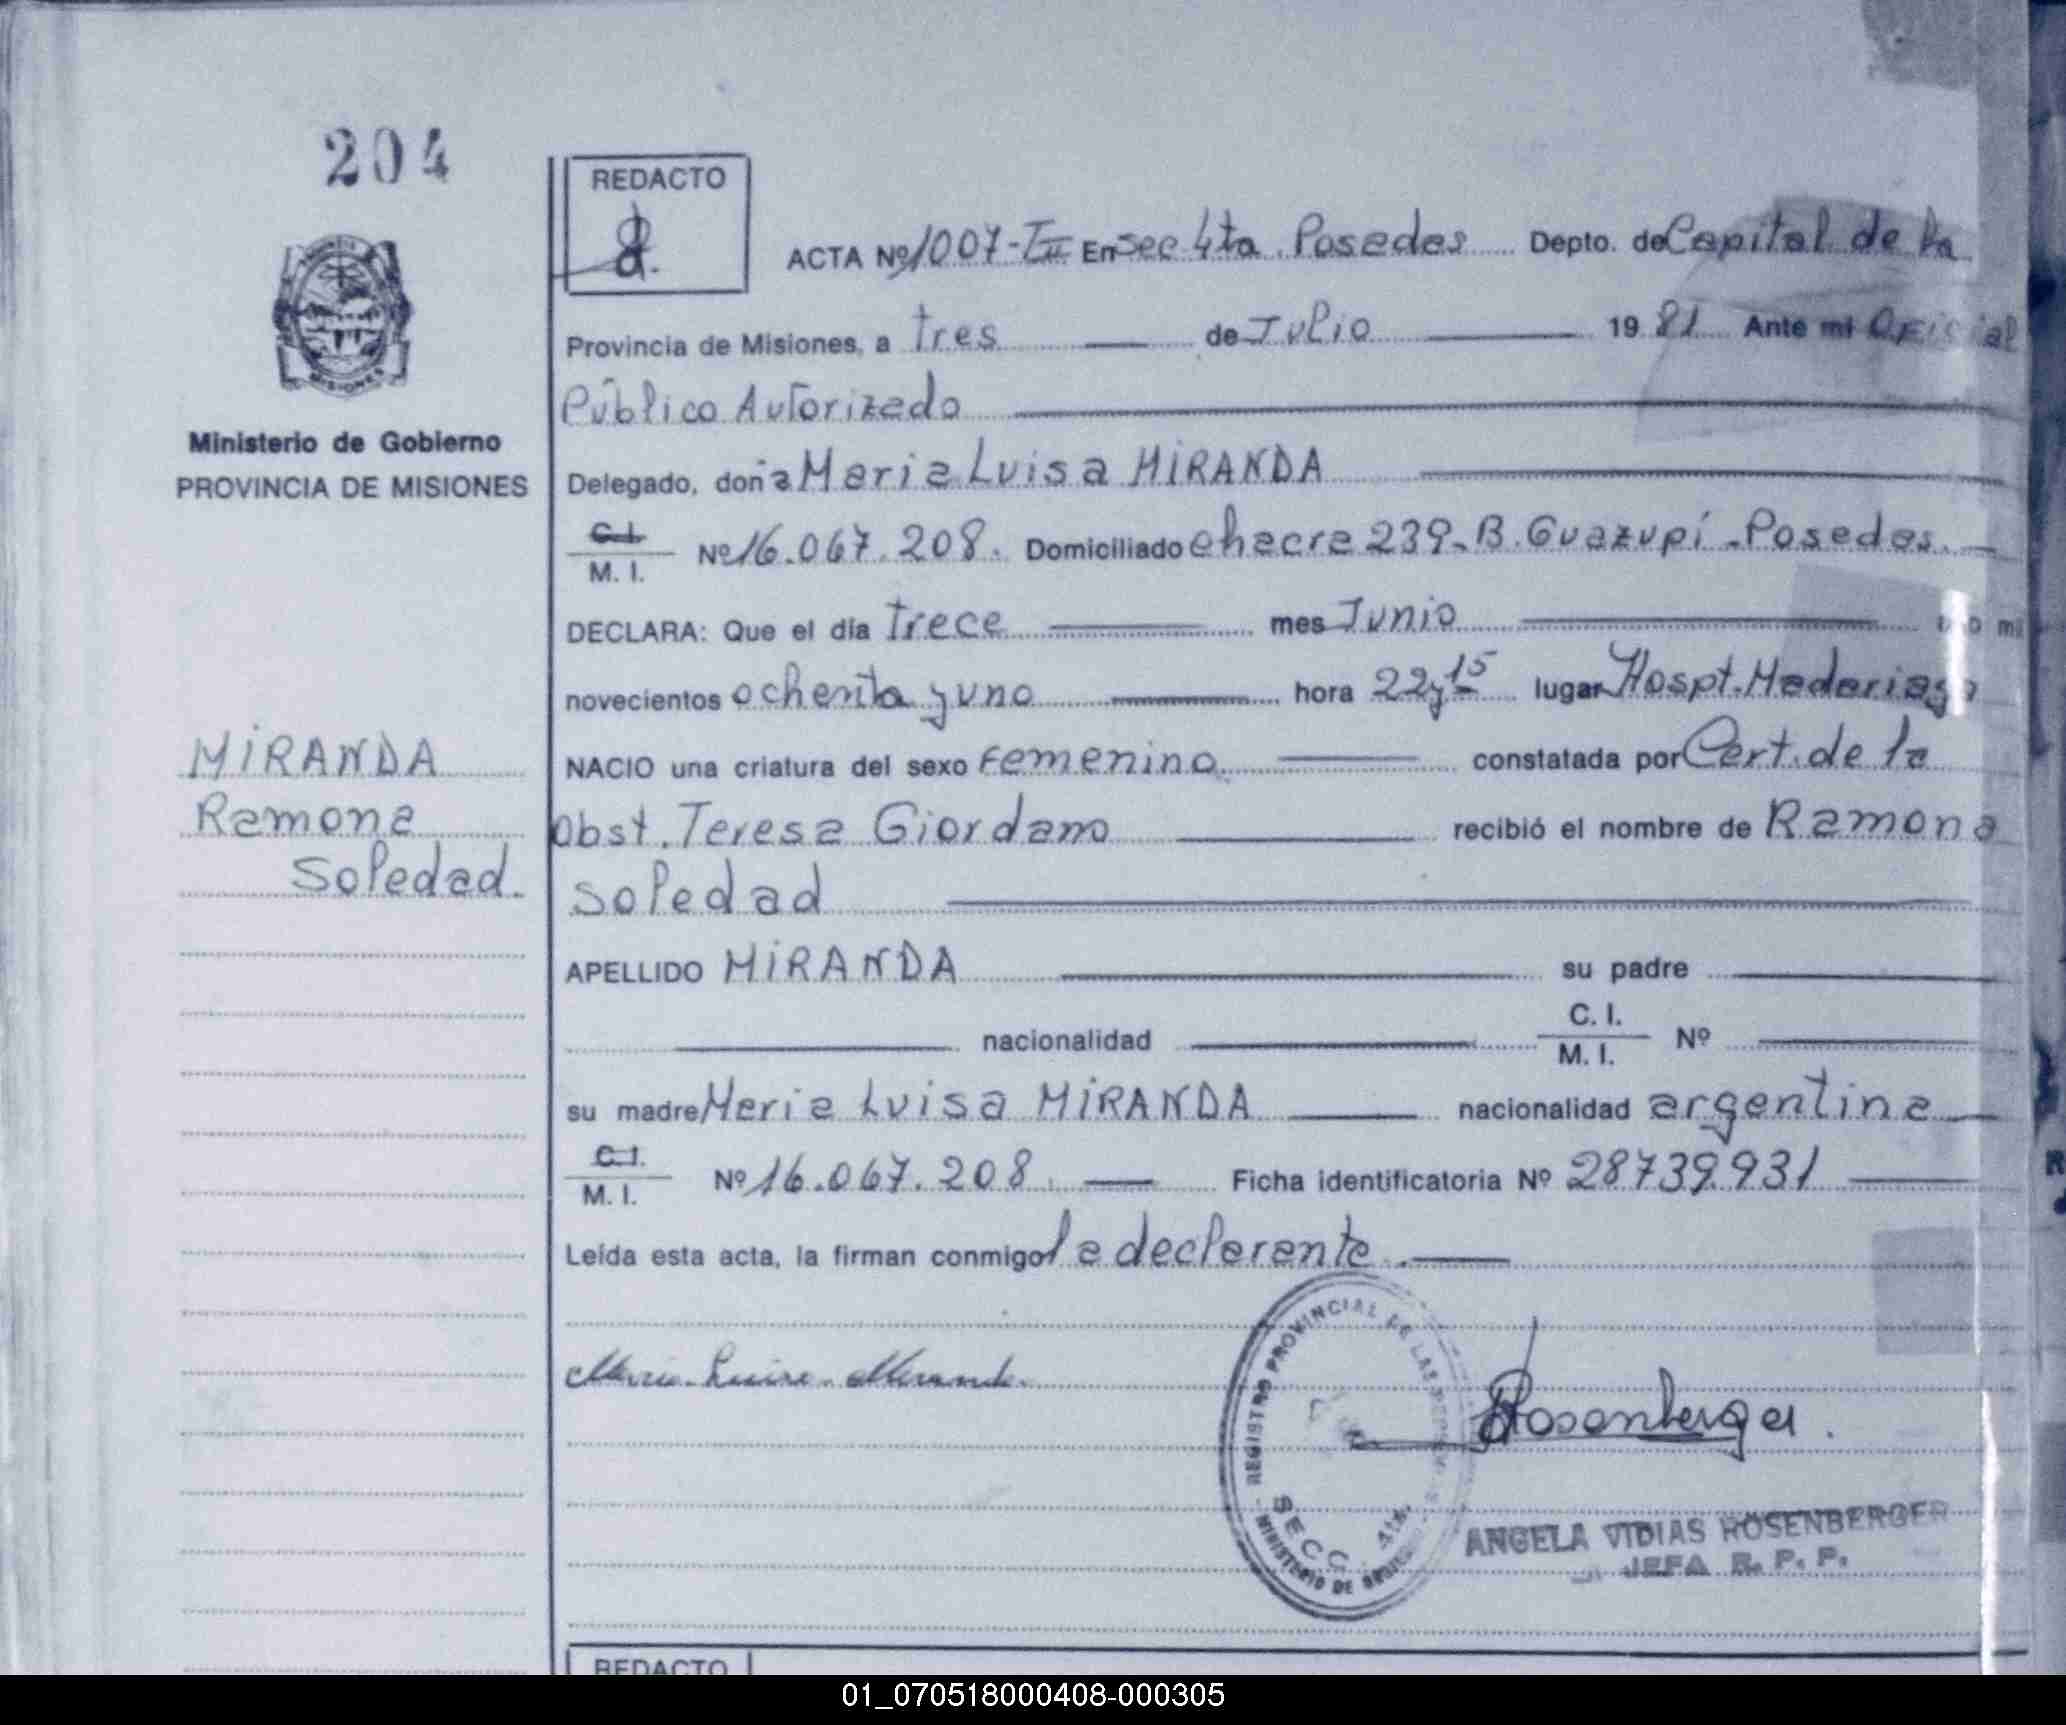 204
REDACTO
ACTA Nº 1007-III En Sec 4ta. Posadas Depto. de Capital de la
Provincia de Misiones, a tres de Julio 1981 Ante mi Oficial
Público Autorizado
Ministerio de Gobierno
PROVINCIA DE MISIONES
Delegado, doña Maria Luisa MIRANDA
C.I.
M. I. Nº 16.067.208. Domiciliado chacra 239-B. Guazupí-Posadas.
DECLARA: Que el día trece mes Junio mi
novecientos ochenta y uno hora 22 y 15 lugar Hospt. Madariaga
MIRANDA
Ramona
Soledad.
NACIO una criatura del sexo femenino constatada por Cert. de la
Obst. Teresa Giordano recibió el nombre de Ramona
Soledad
APELLIDO MIRANDA su padre
nacionalidad C. I.
M. I. Nº
su madre Maria Luisa MIRANDA nacionalidad argentina
C.I.
M. I. Nº 16.067.208 Ficha identificatoria Nº 28739.931
Leída esta acta, la firman conmigo la declarante.
Maria Luisa Miranda
REGISTRO PROVINCIAL DE LAS PERSONAS
SECC. 4ta.
MINISTERIO DE GOBIERNO
Rosenberger
ANGELA VIDIAS ROSENBERGER
JEFA R. P. P.
REDACTO
01_070518000408-000305